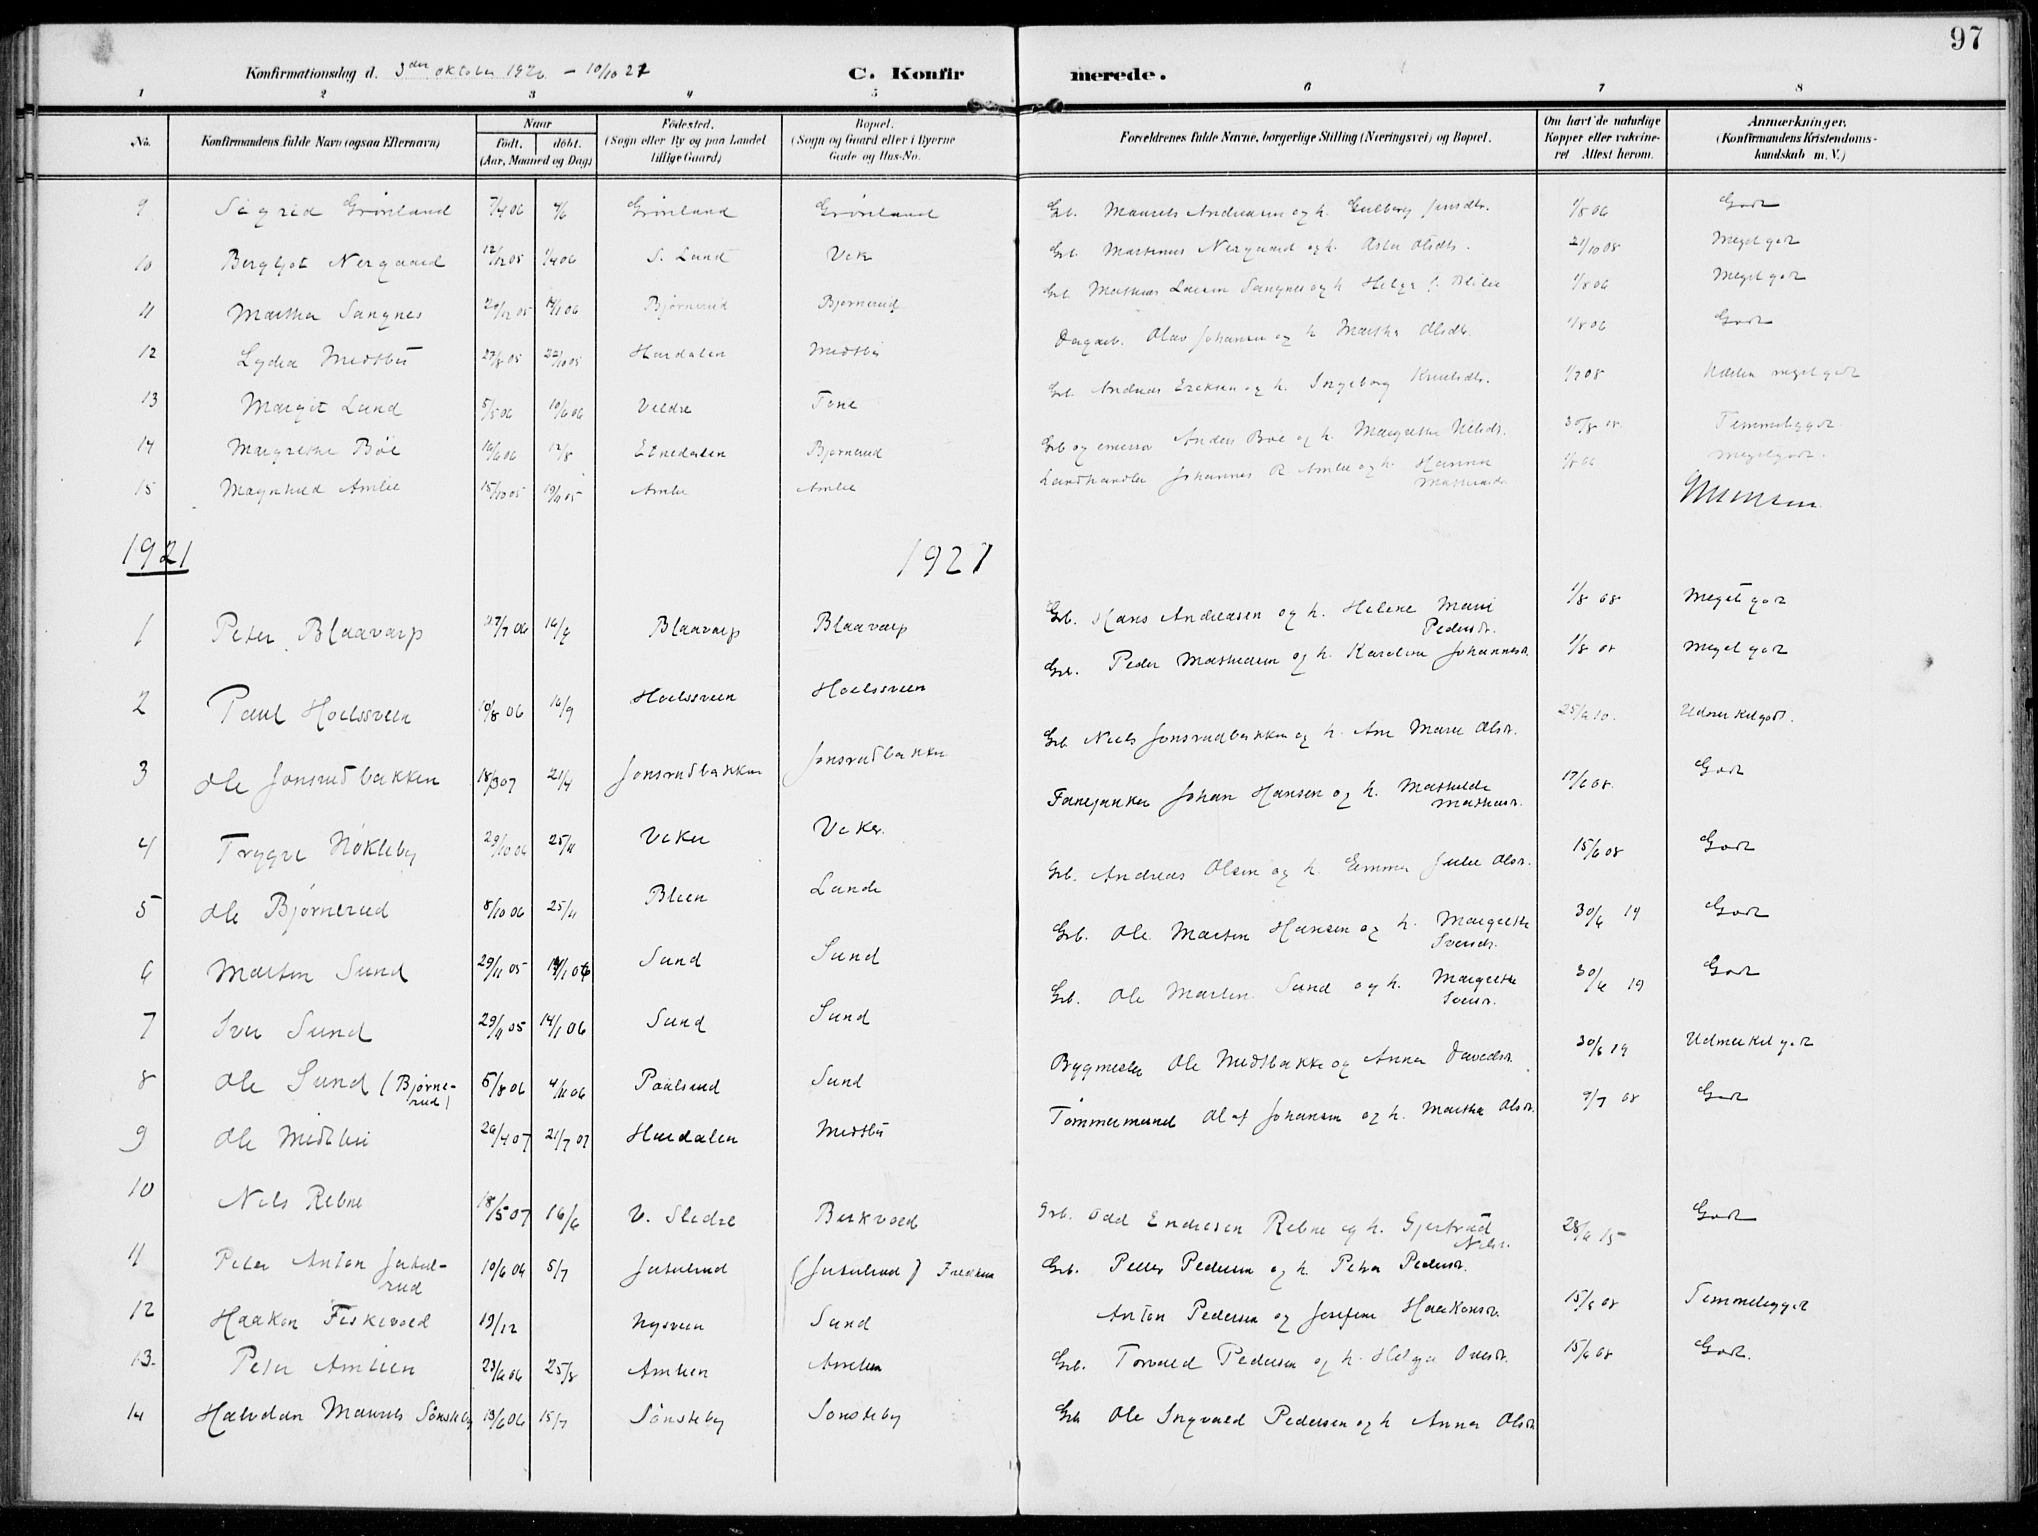 97
Konfirmationsdag d. 3den oktober 1920 – 10/10 21 C. Konfirmerede.
1 2 3 4 5 6 7 8
No. Konfirmandens fulde Navn (ogsaa Efternavn) Naar födt. döbt. (Aar, Maaned og Dag) Födested. (Sogn eller By og paa Landet tillige Gaard) Bopæl. (Sogn og Gaard eller i Byerne Gade og Hus-No. Forældrenes fulde Navne, borgerlige Stilling (Næringsvei) og Bopæl. Om havt de naturlige Kopper eller vakcineret Attest herom. Anmærkninger. (Konfirmandens Kristendomskundskab m. V.)
9 Sigrid Grönland 7/4 06 4/6 Grönland Grönland Grb. Maurits Andreasen og h. Gulborg Jensdtr. 1/8 06 Godt
10 Bergljot Nergaard 12/12 05 1/4 06 S. Lund Vik Grb. Martinus Nergaard og h. Olsdtr. 21/10 08 Meget godt
11 Martha Sangnes 20/12 05 14/1 06 Bjørnerud Bjørnerud Grb. Mathias Larsen Sangnes og h. Helga 1/8 06 Meget godt
12 Lydia Midtbö 27/8 05 22/10 05 Hardalen Midtbö Dagarb. Olav Johansen og h. Martha Olsdtr. 1/8 06 Godt
13 Margit Lund 5/5 06 10/6 06 Veldre Tone Grb. Andreas Eriksen og h. Ingeborg Knutsdtr. 1/7 08 Næsten meget godt
14 Margrethe Böe 10/6 06 12/8 Etnedalen Bjørnerud Grb og Anders Böe og h. Margrethe Nilsdt. 30/8 08. Temmelig godt.
15 Maghild Amlie 15/10 05 19/11 05 Amlie Amlie Landhandler Johannes R. Amlie og h. Hanna 1/8 06 Meget godt.
1921 1921
1 Peter Blaavarp 27/7 06 16/9 Blaavarp Blaavarp Grb. Hans Andreasen og h. Helene Marie Pedersdt. 1/8 08 Meget godt
2 Paul Hoelssveen 10/8 06 16/9 Hoelssveen Hoelssveen Grb. Peder Mathiesen og h. Karoline Johannesdt. 1/8 08 Meget godt
3 Ole Jonsrudbakken 18/3 07 21/4 Jonsrudbakken Jonsrudbakken Grb. Niels Jonsrudbakken og h. Ane Marie Olsdt. 25/6 10. Udmerket godt.
4 Trygve Nökleby 29/10 06 25/11 Veker Veker. Fanejunker Johan Hansen og h. Mathilde Mathiasdt. 17/6 08. Godt
5 Ole Bjørnerud 8/10 06 25/11 Blien Lunde Grb. Andreas Olsen og h. Emma Julie Olsdt. 15/6 08 Godt
6 Martin Sund 29/11 05 14/1 06 Sund Sund Grb. Ole Martin Hansen og h. Margrethe Iversdt. 30/6 19 Godt
7 Iver Sund 29/11 05 14/1 06 Sund Sund Grb. Ole Martin Sund og h. Margrethe Iversdt. 30/6 19 Godt
8 Ole Sund (Bjørnerud) 5/8 06 4/11 06 Paalsrud Sund Bygmester Ole Midtbakke og Anna Davidsdt. 30/6 19 Udmerket godt
9 Ole Midtbö 26/4 07 21/7 07 Hardalen Midtbö Tömmermand Olaf Johansen og h. Martha Olsdt. 9/7 08 Godt
10 Nils Rebne 18/5 07 16/6 V. Slidre Berkvold Grb. Odd Endresen Rebne og h. Gjertrud Nilsdt. 28/6 15 Godt
11 Peter Anton Jutulrud 10/6 06 5/7 Jutulrud (Jutulrud) Grb. Petter Pedersen og h. Petra Pedersdt.
12 Haakon Fiskevold 19/12 Nysveen Sund Anton Pedersen og Josefine Haakonsdt. 15/6 08 Temmelig godt
13. Peter Amlien 23/6 06 25/8 Amlien Amlien Grb. Torvald Pedersen og h. Helga Olsdt. 15/6 08 Godt.
14 Halvdan Maurits Sönsteby 13/6 06 15/7 Sönsteby Sönsteby Grb Ole Ingvald Pedersen og h Anna Olsdt